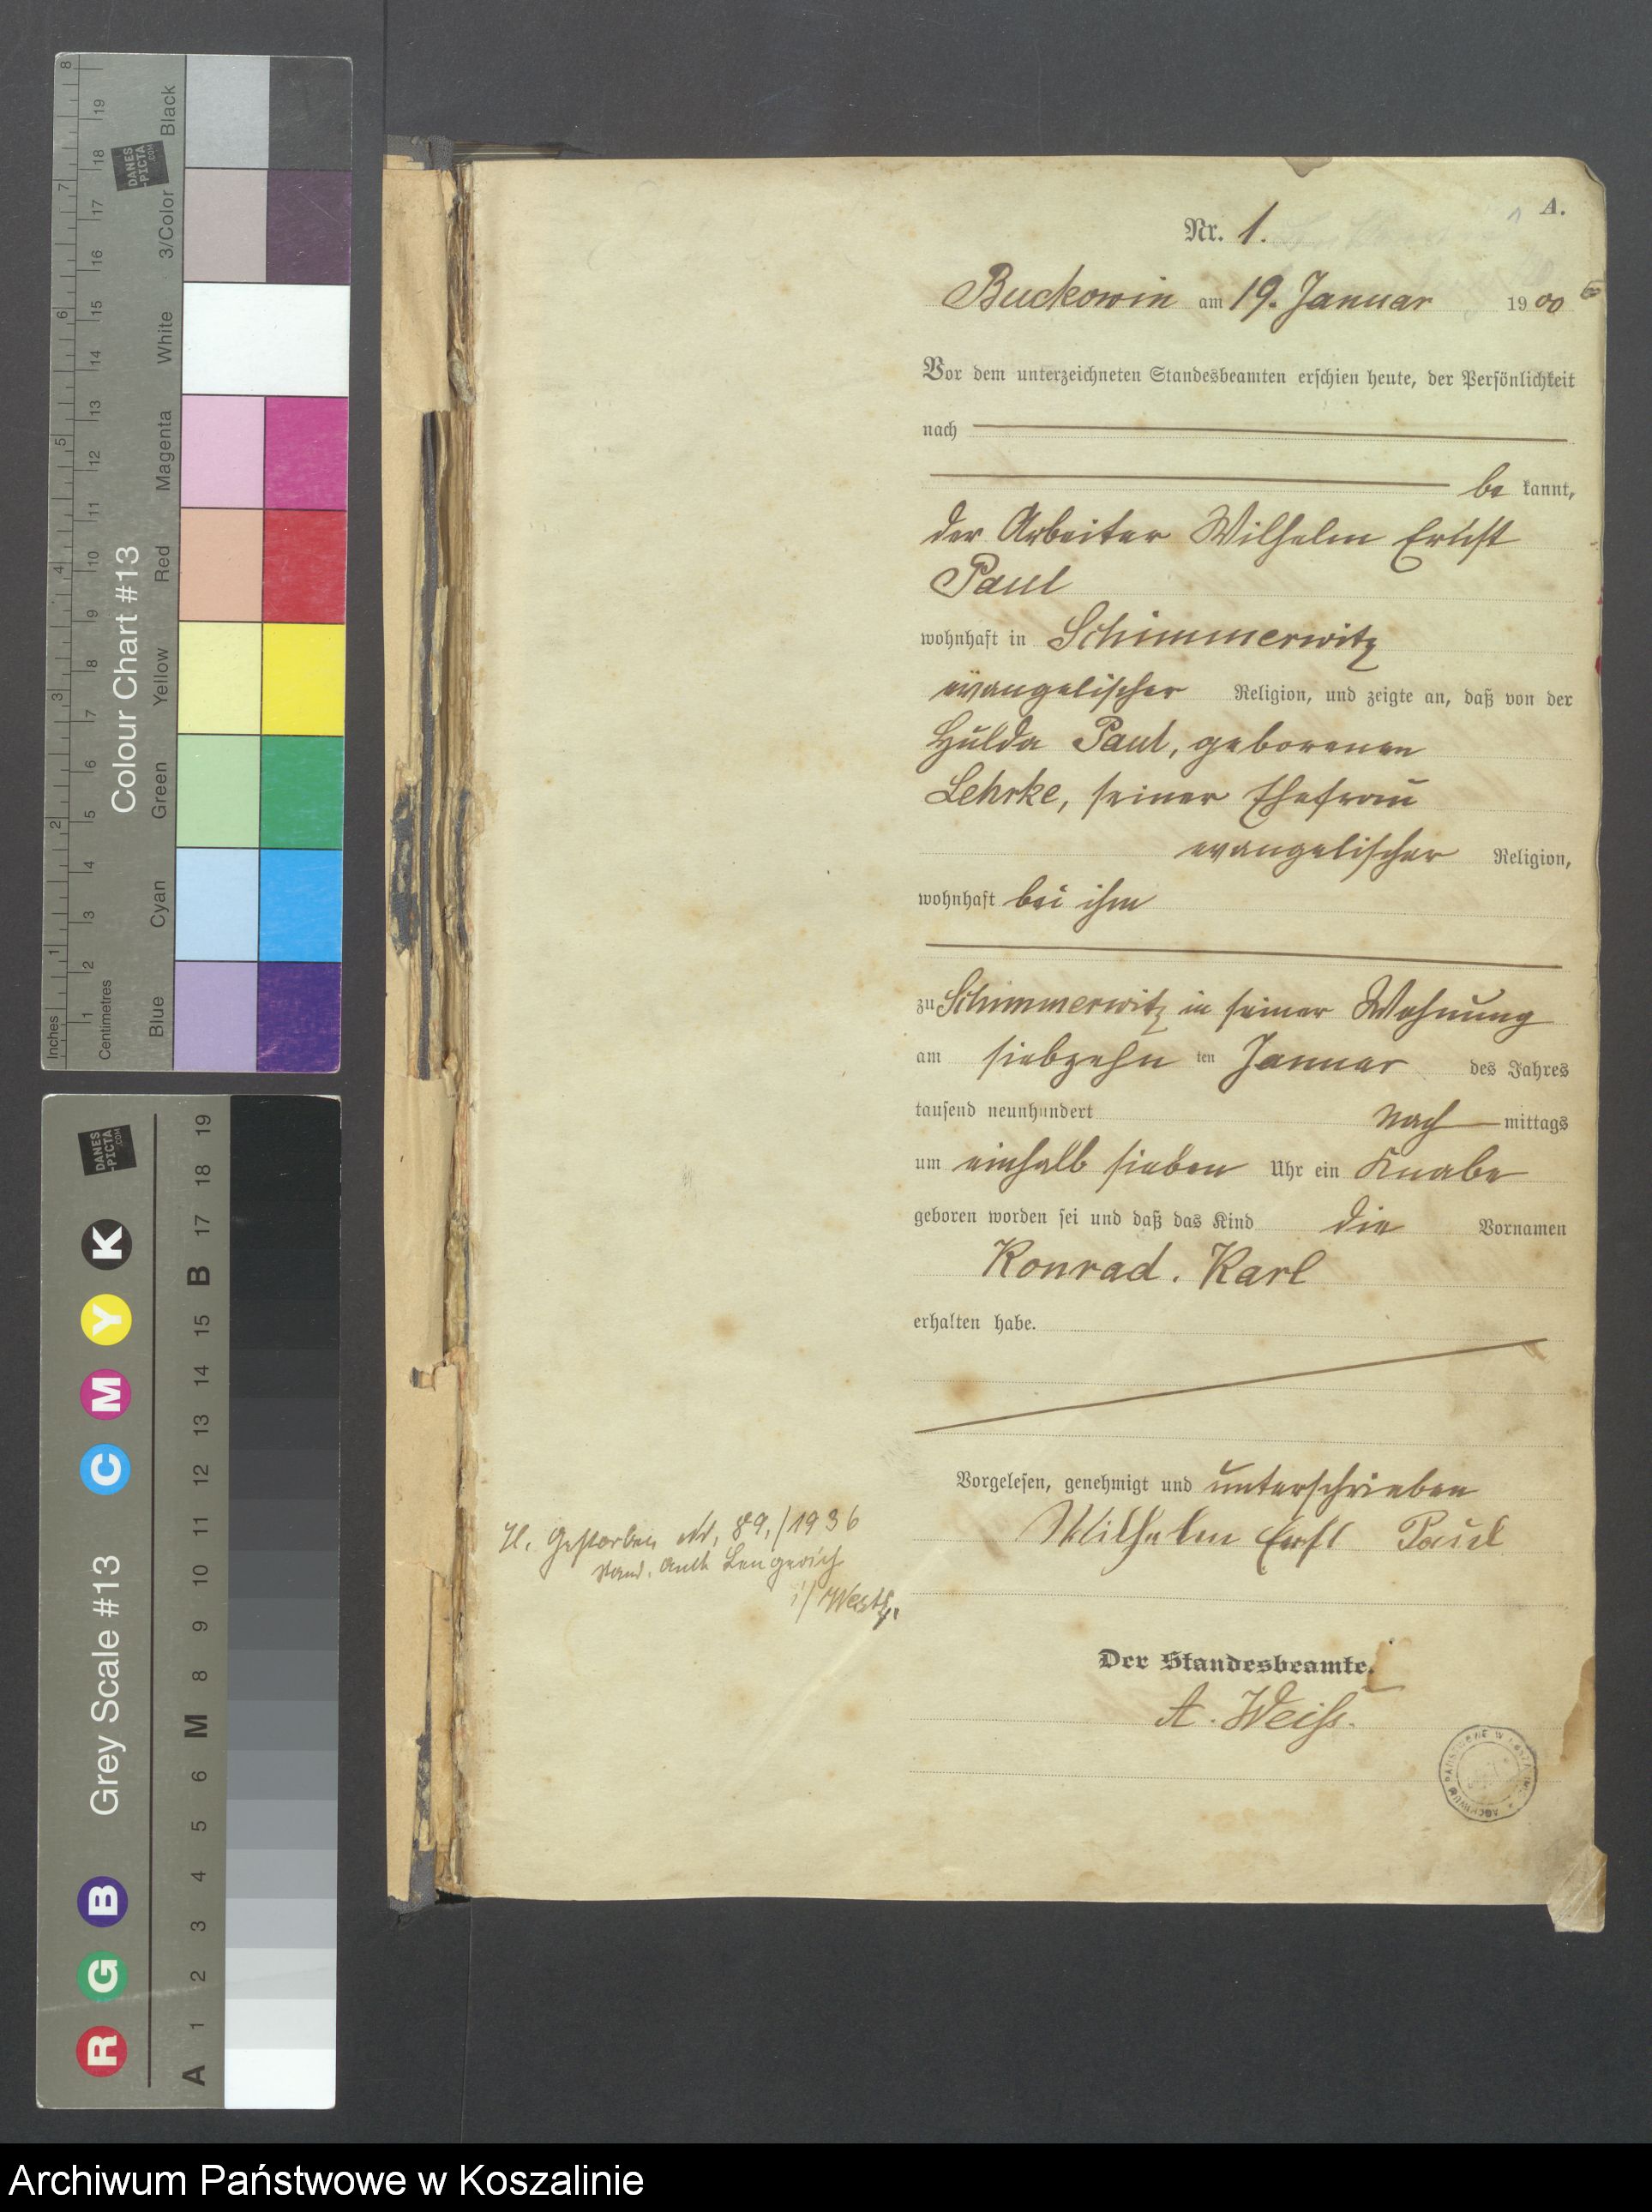 A.
Nr. 1.
Buckowin am 19. Januar 1900
Vor dem unterzeichneten Standesbeamten erschien heute, der Persönlichkeit
nach
be kannt,
der Arbeiter Wilhelm Ernst
Paul
wohnhaft in Schimmerwitz
evangelischer Religion, und zeigte an, daß von der
Hulda Paul, geborenen
Lehrke, seiner Ehefrau
evangelischer Religion,
wohnhaft bei ihm
zu Schimmerwitz in seiner Wohnung
am siebzehn ten Januar des Jahres
tausend neunhundert Nach mittags
um einhalb sieben Uhr ein Knabe
geboren worden sei und daß das Kind die Vornamen
Konrad. Karl
erhalten habe.
Vorgelesen, genehmigt und unterschrieben
Wilhelm Ernst Paul
Der Standesbeamte.
A. Weiß.
H. Gestorben Nr. 89,/1936
Stand. Amt Lengerich
i/Westf.
Inches 1 2 3 4 5 6 7 8
Centimetres 1 2 3 4 5 6 7 8 9 10 11 12 13 14 15 16 17 18 19
Colour Chart #13
Blue Cyan Green Yellow Red Magenta White 3/Color Black
DANES
-PICTA
.COM
Grey Scale #13
R G B C M Y K
A 1 2 3 4 5 6 M 8 9 10 11 12 13 14 15 B 17 18 19
DANES
-PICTA
.COM
Archiwum Państwowe w Koszalinie